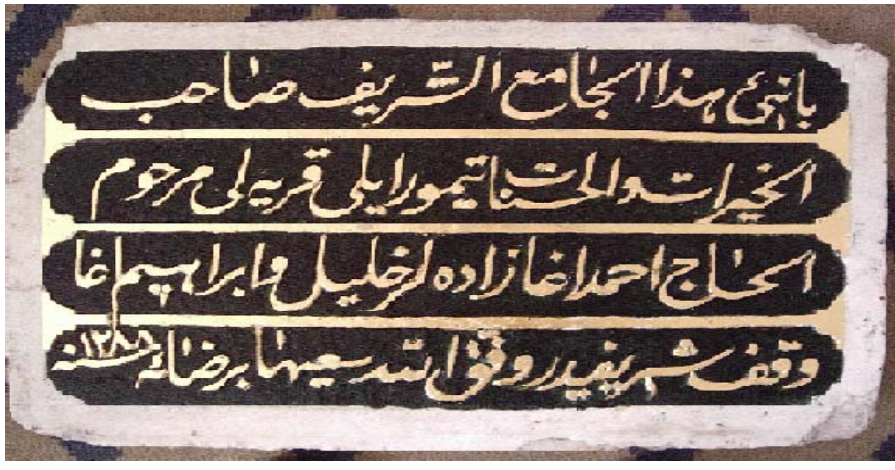 بانئ هذا الجامع الشريف صاحب
الخيرات والحسنات تيمورايلى قريه لى مرحوم
الحاج احمد اغا زاده لر خليل وابراهيم اغا
وقف شريفيدر وفق الله سعيهما برضائه سنه